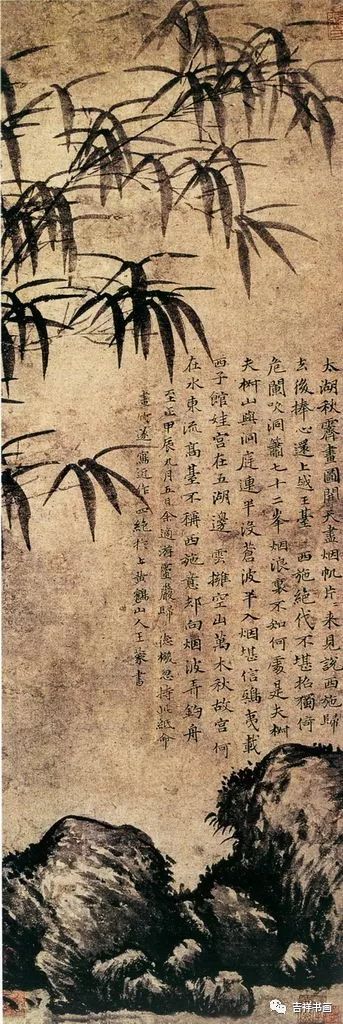 太湖秋霽畫圖開天盡烟帆片片來見說西施歸
去後捧心還上越王臺 西施絕代不堪招獨倚
危闌吹洞簫七十二峯烟浪裏不知何處是夫椒
夫椒山與洞庭連半沒蒼波半入烟堪信鴟夷載
西子館娃宮在五湖邊 雲擁空山萬木秋故宮何
在水東流高臺不稱西施意却向烟波弄釣舟
至正甲辰九月五日余適游靈巖歸德機忽持此紙命
畫竹遂寫近作四絕於上黃鶴山人王蒙書
吉祥书画